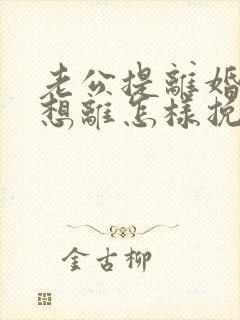 老公提離婚
想離怎樣挽
金古柳